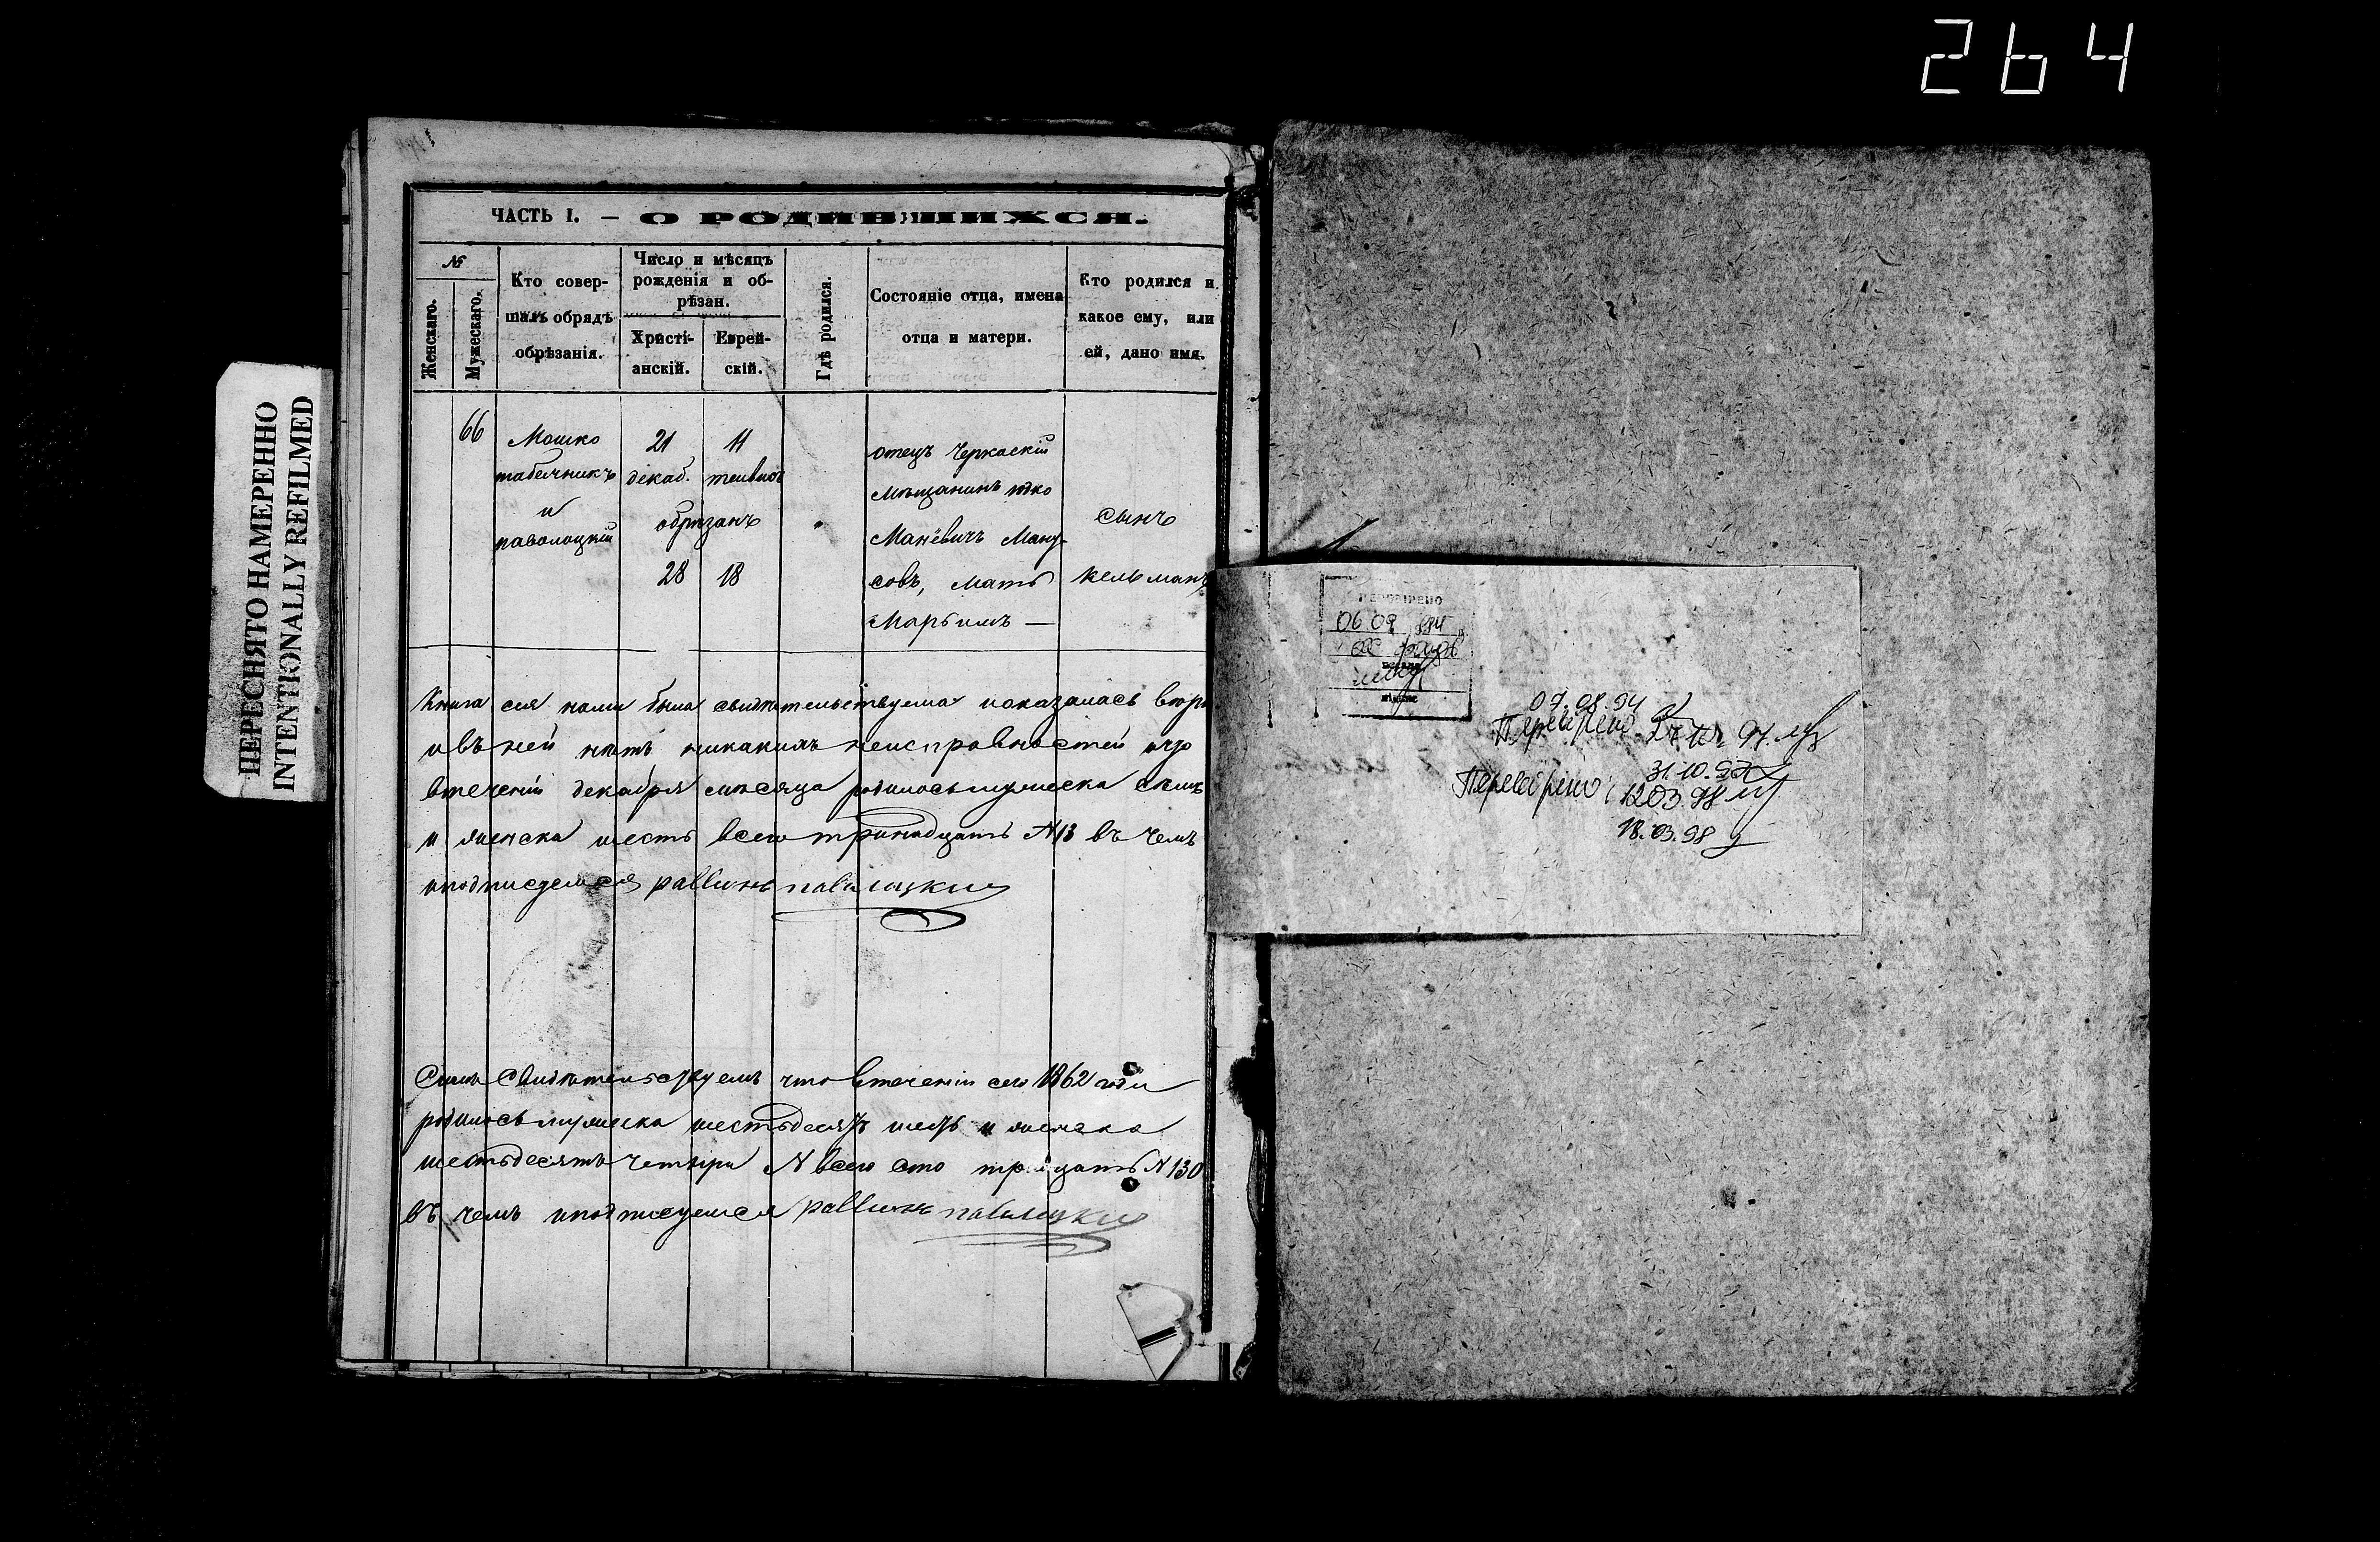 264
ПЕРЕСНЯТО НАМЕРЕННО
INTENTIONALLY REFILMED
ЧАСТЬ I. — О РОДИВШИХСЯ.
№
Женскаго.
Мужескаго.
Кто совер-
шалъ обрядъ
обрѣзанія.
Число и мѣсяцъ
рожденія и об-
рѣзан.
Христі-
анскій.
Еврей-
скій.
Гдѣ родился.
Состояніе отца, имена
отца и матери.
Кто родился и
какое ему, или
ей, дано имя.
66
Мошко
табачникъ
и
паволоцкій
21
декаб.
11
обрѣзанъ
28
18
отецъ Черкаскій
мѣщанинъ
МаневичъМану-
совъ, мать
Марьимъ —
сынъ
Кельманъ
Книга сія нами была свидѣтельствуема и оказалась
и въ ней нѣтъ никакихъ неисправностей
втеченіи декабря мѣсяца родилось мужеска
и женска шесть всего тринадцать №13 въ чемъ
и подписуемся раввинъ паволоцкій
Симъ свидѣтельствуемъ что втеченіи сего 1862 года
родилось мужеска шестьдесятъ шесть и женска
шестьдесятъ четыри № всего сто тридцать №130
въ чемъ и подписуемся раввинъ паволоцкій
ПЕРЕВІРЕНО
06 09
07.08.94
Перевірено
97
31.10.97
Перевірено: 12.03.98
18.03.98